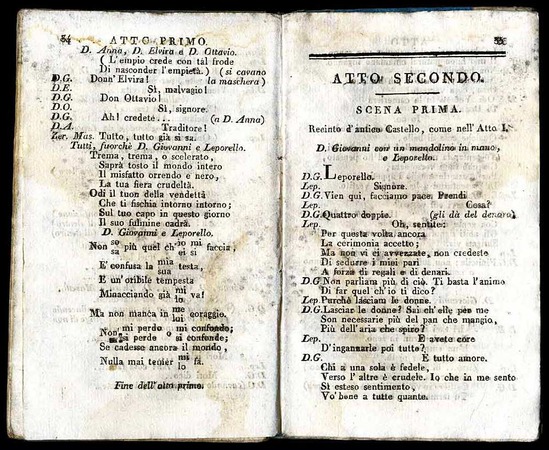 54 ATTO PRIMO.
D. Anna, D. Elvira e D. Ottavio.
( L'empio crede con tal frode
Di nasconder l'empietà. ) (si cavano
D.G. Donn' Elvira! la maschera)
D.E. Sì, malvagio!
D.G. Don Ottavio!
D.O. Sì, signore.
D.G. Ah! credete... (a D. Anna)
D.A. Traditore!
Zer. Mas. Tutto, tutto già si sa.
Tutti, fuorchè D. Giovanni e Leporello.
Trema, trema, o scelerato,
Saprà tosto il mondo intero
Il misfatto orrendo e nero,
La tua fiera crudeltà.
Odi il tuon della vendetta
Che ti fischia intorno intorno;
Sul tuo capo in questo giorno
Il suo fulmine cadrà.
D. Giovanni e Leporello.
Non so sa più quel ch' io ei mi si faccia,
E' confusa la mia sua testa,
E un' oribile tempesta
Minacciando già mi lo va!
Ma non manca in me lui coraggio.
Non mi perdo o mi confondo;
si perde o si confonde;
Se cadesse ancora il mondo,
Nulla mai temer mi lo fà.
Fine dell' atto primo.
ATTO SECONDO.
SCENA PRIMA.
Recinto d'antico Castello, come nell' Atto I.
D. Giovanni con un mandolino in mano,
e Leporello.
D.G. Leporello.
Lep. Signore.
D.G. Vien qui, facciamo pace. Prendi
Lep. Cosa?
D.G. Quattro doppie. (gli dà del denaro)
Lep. Oh, sentite:
Per questa volta ancora
La cerimonia accetto;
Ma non vi ci avvezzate, non credeste
Di sedurre i miei pari
A forza di regali e di denari.
D.G Non parliam più di ciò. Ti basta l'animo
Di far quel ch'io ti dico?
Lep. Purchè lasciam le donne.
D.G. Lasciar le donne? Sai ch' elle per me
Son necessarie più del pan che mangio,
Più dell'aria che spiro?
Lep. E avete core
D'ingannarle poi tutte?
D.G. E tutto amore.
Chi a una sola è fedele,
Verso l'altre è crudele. Io che in me sento
Sì esteso sentimento,
Vo' bene a tutte quante.